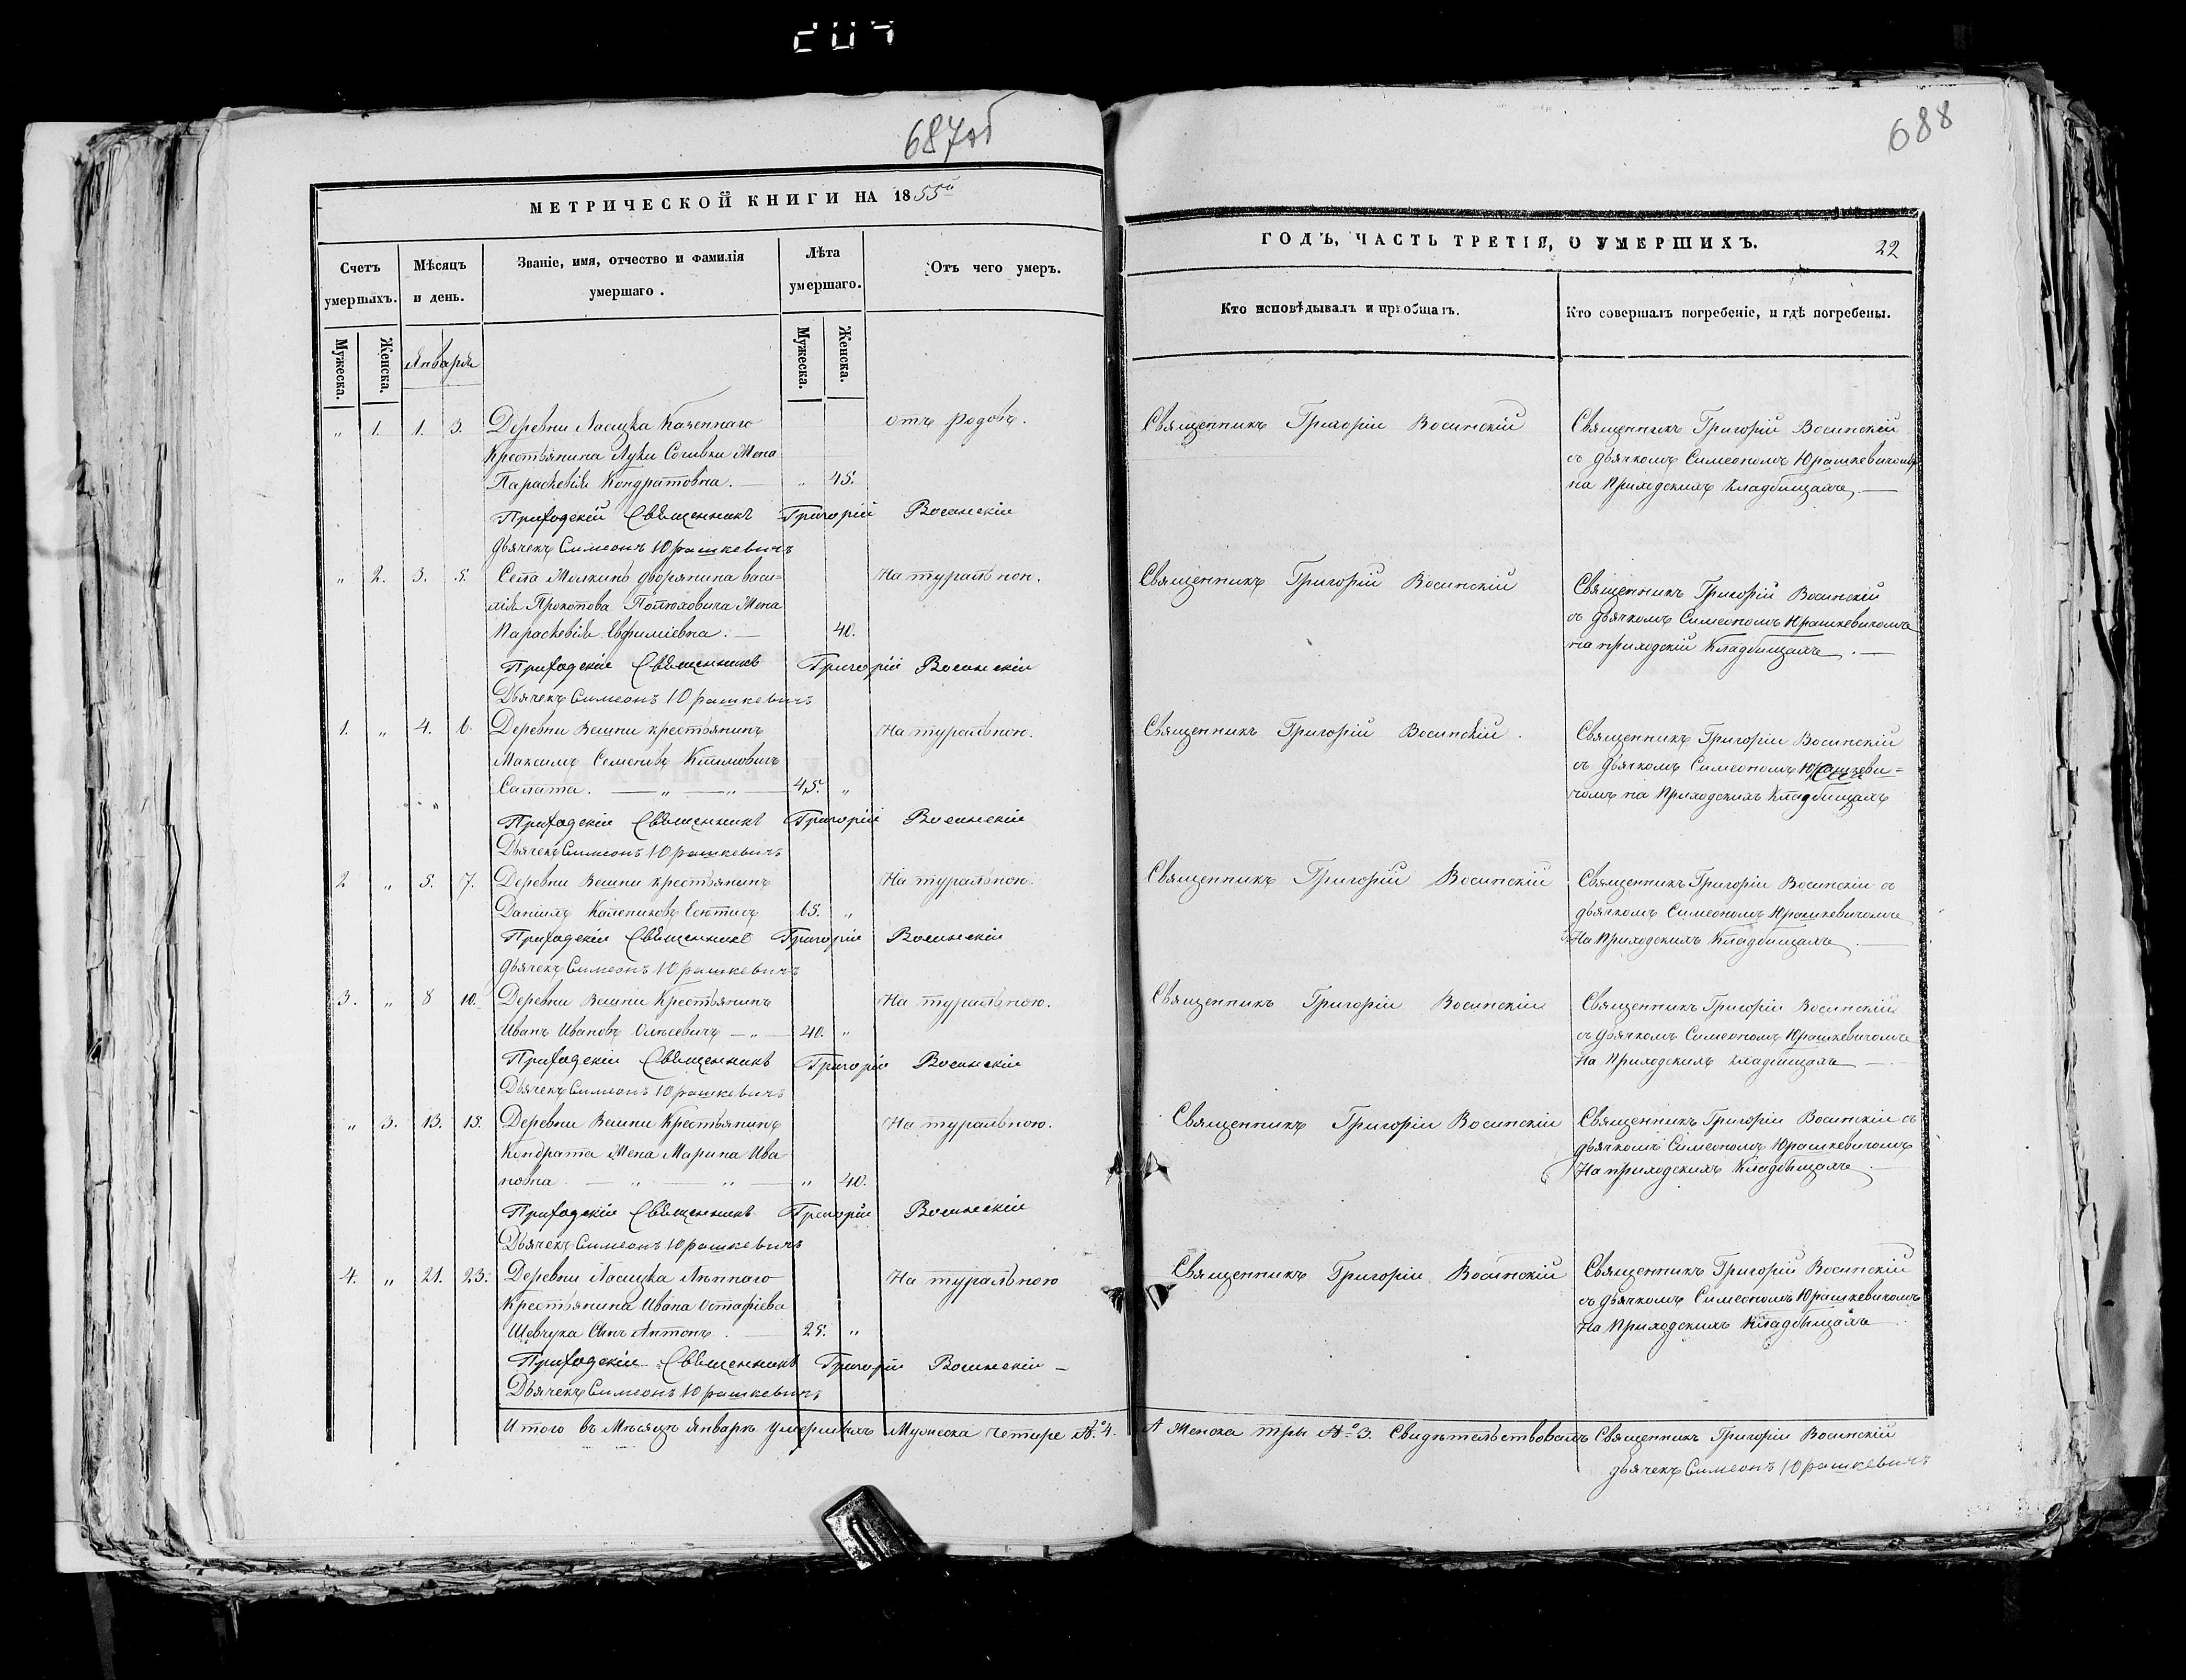 687об
МЕТРИЧЕСКОЙ КНИГИ НА 1855й
Счетъ умершихъ.
Мѣсяцъ и день.
Званіе, имя, отчество и фамилія умершаго.
Лѣта умершаго.
Отъ чего умеръ.
Мужеска.
Женска.
Мужеска.
Женска.
Января
„ 1. 1. 3. Деревни Ласицка Казеннаго отъ родовъ.
Крестьянина Луки Сочивки Жена
Параскевія Кондратовна. — „ 45.
Приходскій Священникъ Григорій Восинскій
дьячекъ Симеонъ Юрашкевичъ
„ 2. 3. 5. Села Молкинь дворянина Васи= Натуральною.
лія Прокопова Полюховича Жена
Параскевія Евфиміевна. — 40.
Приходскій Священникъ Григорій Восинскій
Дьячекъ Симеонъ Юрашкевичъ
1. „ 4. 6. Деревни Вешни крестьянинъ Натуральною.
Максимъ Семеновъ Климовичъ
Салата. — „ — „ — 45. „
Приходскій Священникъ Григорій Восинскій
Дьячекъ Симеонъ Юрашкевичъ
2 „ 5. 7. Деревни Вешни крестьянинъ Натуральною.
Даніилъ Калениковъ 65. „
Приходскій Священникъ Григорій Восинскій
дьячекъ Симеонъ Юрашкевичъ
3. „ 8 10. Деревни Вешни Крестьянинъ Натуральною.
Иванъ Ивановъ Олѣсевичъ — „ — 40. „
Приходскій Священникъ Григорій Восинскій
Дьячекъ Симеонъ Юрашкевичъ
„ 3. 13. 15. Деревни Вешни Крестьянинъ Натуральною.
Кондрата Жена Марина Ива
новна. — „ — „ — „ 40.
Приходскій Священникъ Григорій Восинскій
Дьячекъ Симеонъ Юрашкевичъ
4. „ 21. 23. Деревни Ласицка Лѣннаго Натуральною
Крестьянина Ивана Остафіева
Шевчука Сынъ Антонъ. — 25. „
Приходскій Священникъ Григорій Восинскій —
Дьячекъ Симеонъ Юрашкевичъ
Итого въ Мѣсяцѣ Январѣ умершихъ Мужеска четыре №. 4.
688
ГОДЪ, ЧАСТЬ ТРЕТІЯ, О УМЕРШИХЪ. 22
Кто исповѣдывалъ и пріобщалъ.
Кто совершалъ погребеніе, и гдѣ погребены.
Священникъ Григорій Восинскій
Священникъ Григорій Восинскій
съ дьячкомъ Симеономъ Юрашкевичомъ
на Приходскихъ Кладбищахъ. —
Священникъ Григорій Восинскій
Священникъ Григорій Восинскій
съ дьячкомъ Симеономъ Юрашкевичомъ
на приходскій Кладбищахъ. —
Священникъ Григорій Восинскій.
Священникъ Григорій Восинскій
съ дьячкомъ Симеономъ Юрашкеви=
чомъ на Приходскихъ Кладбищахъ
Священникъ Григорій Восинскій
Священникъ Григорій Восинскій съ
дьячкомъ Симеономъ Юрашкевичомъ
На Приходскихъ Кладбищахъ. —
Священникъ Григорій Восинскій
Священникъ Григорій Восинскій
съ дьячкомъ Симеономъ Юрашкевичомъ
На Приходскихъ кладбищахъ —
Священникъ Григорій Восинскій
Священникъ Григорій Восинскій съ
дьячкомъ Симеономъ Юрашкевичомъ
На приходскихъ Кладбищахъ. —
Священникъ Григорій Восинскій
Священникъ Григорій Восинскій
съ дьячкомъ Симеономъ Юрашкевичомъ
На Приходскихъ Кладбищахъ
А Женска три №. 3. Свидѣтельствовалъ Священникъ Григорій Восинскій
дьячекъ Симеонъ Юрашкевичъ